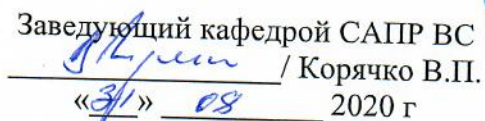 Заведующий кафедрой САПР ВС
/ Корячко В.П.
«31» 08 2020 г